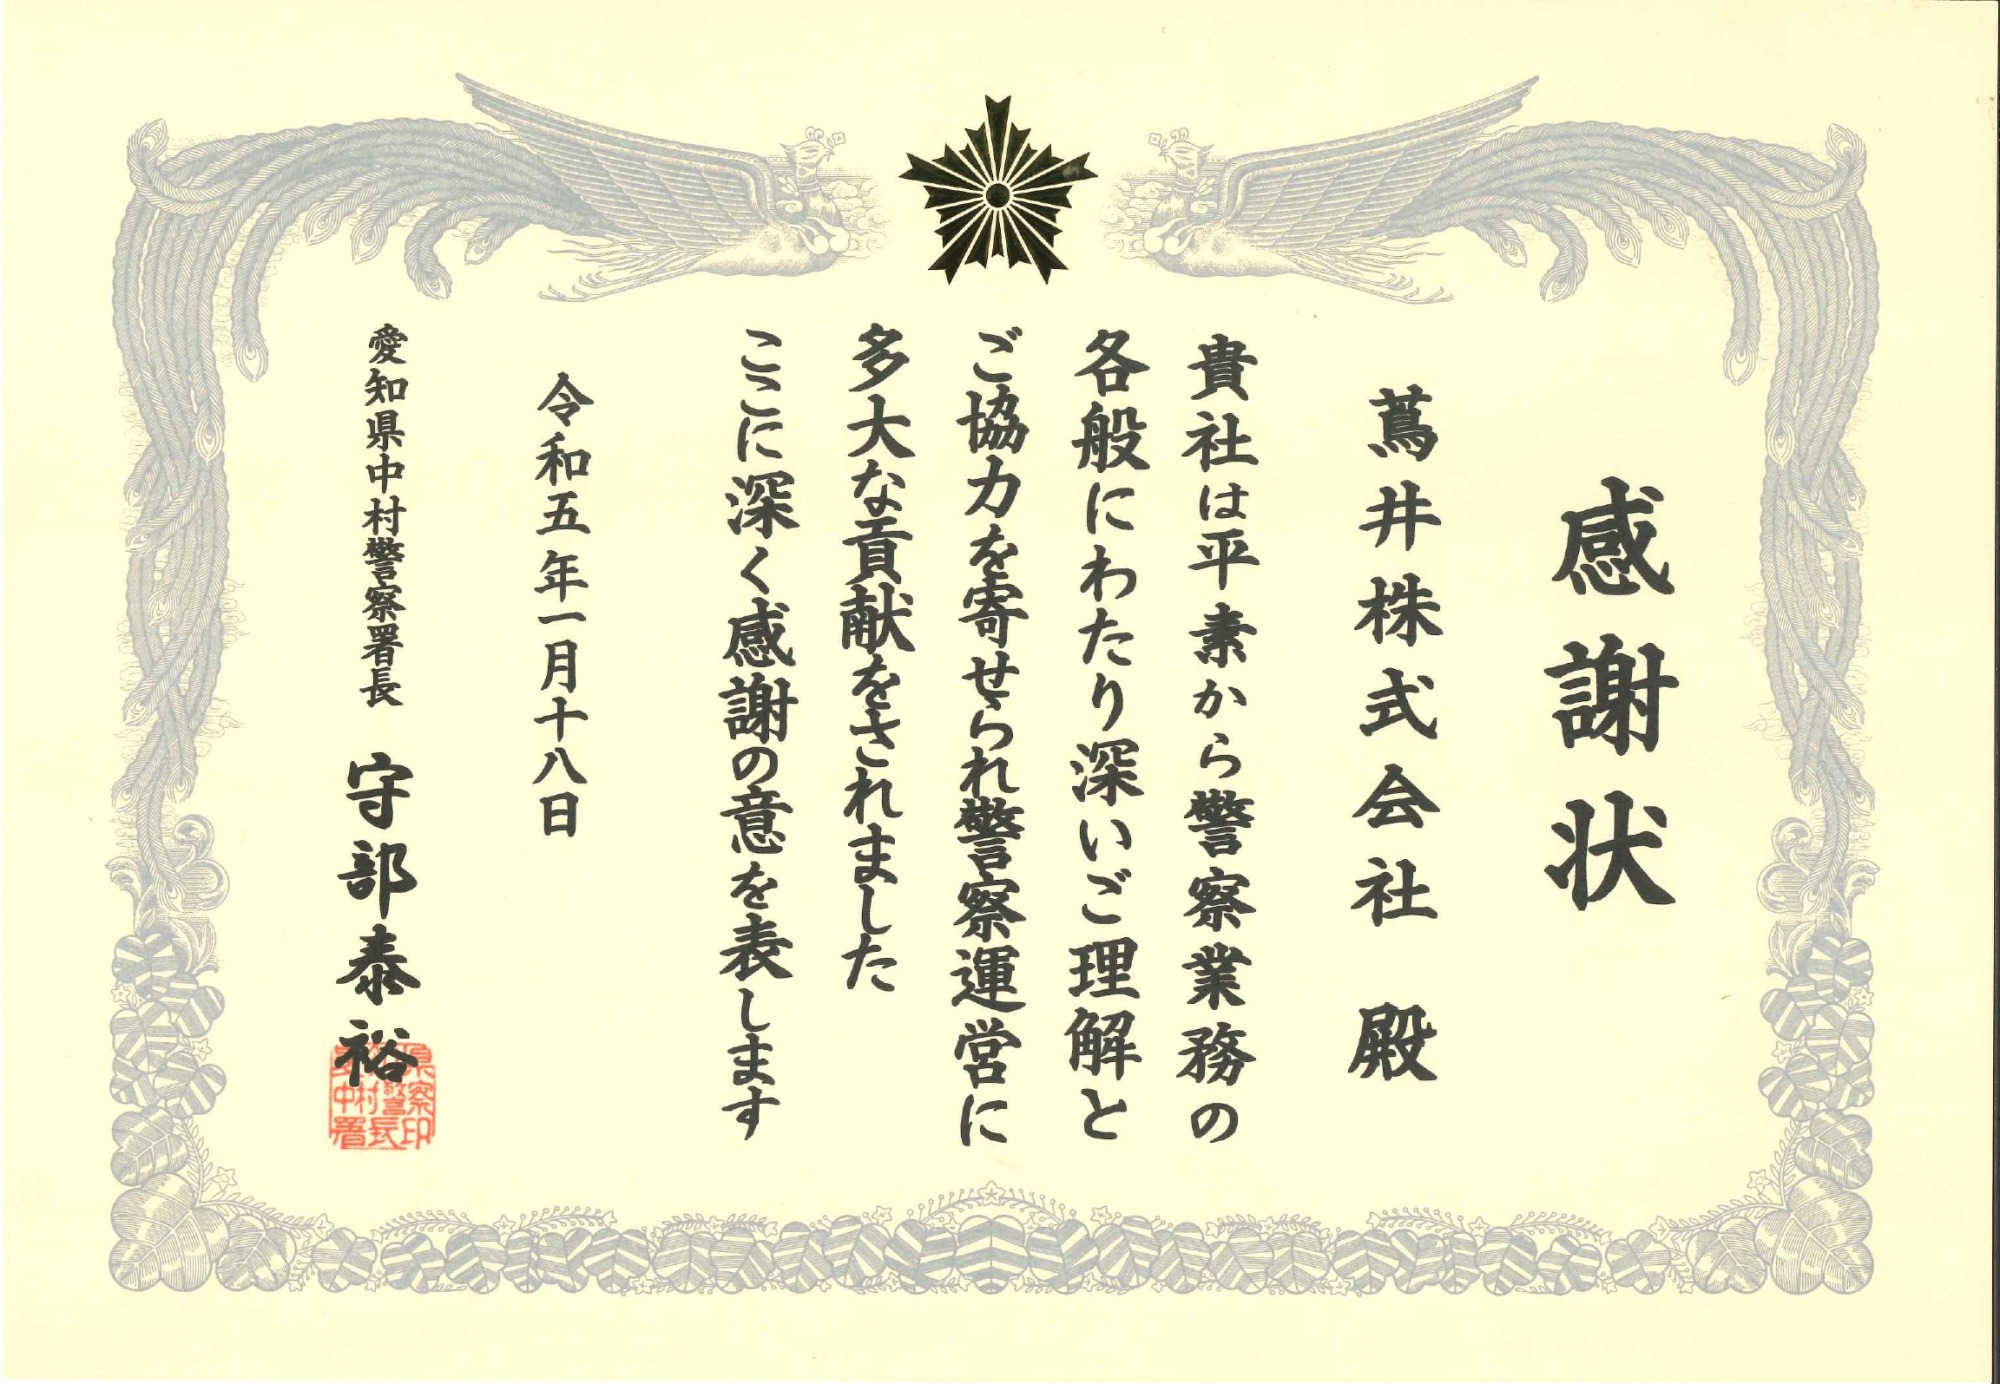 感謝状
蔦井株式会社 殿
貴社は平素から警察業務の
各般にわたり深いご理解と
ご協力を寄せられ警察運営に
多大な貢献をされました
ここに深く感謝の意を表します
令和五年一月十八日
愛知県中村警察署長 守部泰裕